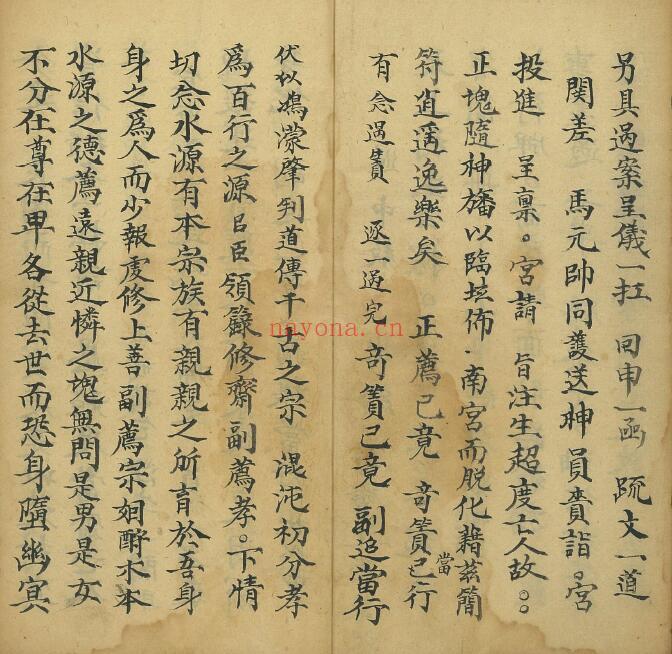 另具過案呈儀一扛 回申一函 疏文一道
関差 馬元帥同護送神員賫詣。宮
投進 呈禀。宮請 旨注生超度亡人故。。
正塊隨神旛以臨壇佈·南宮而脱化藉茲簡
符逍遥逸樂矣 正薦已竟 音簀已行當
有念過簀 逐一過完 音簀已竟 副追當行
伏以鴻濛肇判道傳千古之宗 混沌初分孝
爲百行之源 臣領籙修齋副薦孝。下情
切念水源有本宗族有親親之所育於吾身
身之爲人而少報虔修上善副薦宗姻酧木本
水源之德薦遠親近憐之塊無問是男是女
不分在尊在卑各從去世而恐身墮幽冥
nayona.cn